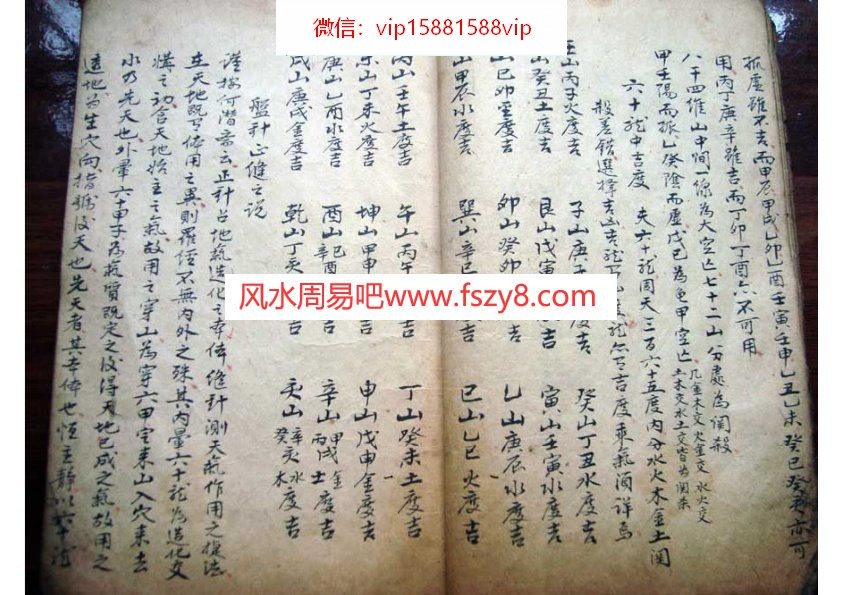 微信：vip15881588vip
风水周易吧www.fszy8.com
孤虛雖不吉而甲辰甲戌乙卯乙酉壬寅壬申乙丑乙未癸巳癸亥亦可
用丙丁庚辛雖吉而丁卯丁酉亦不可用
八干四維山中間一線為大空亡七十二山分處為関殺
几金木交火金交水火交
土木交水土交皆為関杀
甲壬陽而孤乙癸陰而虛戊己為龜甲空亡
六十龍中吉度 夫六十龍周天三百六十五度内分水火木金土関
殺差錯選擇吉山吉龍
吉度乘氣酒詳焉
壬山丙子火度吉 子山庚子 吉 癸山丁丑水度吉
山癸丑土度吉 艮山戊寅 吉 寅山壬寅水度吉
山己卯 度吉 卯山癸卯 吉 乙山庚辰水度吉
山甲辰水度吉 巽山辛巳 吉 巳山乙巳火度吉
丙山壬午土度吉 午山丙午 吉 丁山癸未土度吉
未山丁未火度吉 坤山甲申 吉 申山戊申金度吉
庚山乙酉水度吉 酉山 己酉 辛酉 吉 辛山 甲戌金 丙戌土 度吉
戌山庚戌金度吉 乾山丁亥 吉 亥山 辛亥水 癸亥木 度吉
盤針正縫之說
謹按何潛斋云正针占地氣造化之本体縫針測天氣作用之提法
在天地既有体用之異則羅经不無内外之殊其内暈六十龍為造化交
媾之初含天地始主之氣故用之穿山為穿六甲定来山入穴来去
水乃先天也外暈六十甲子為氣質既定之後得天地已成之氣故用之
透地為生穴向指歸後天也先天者其本体也恆主静以六十龍